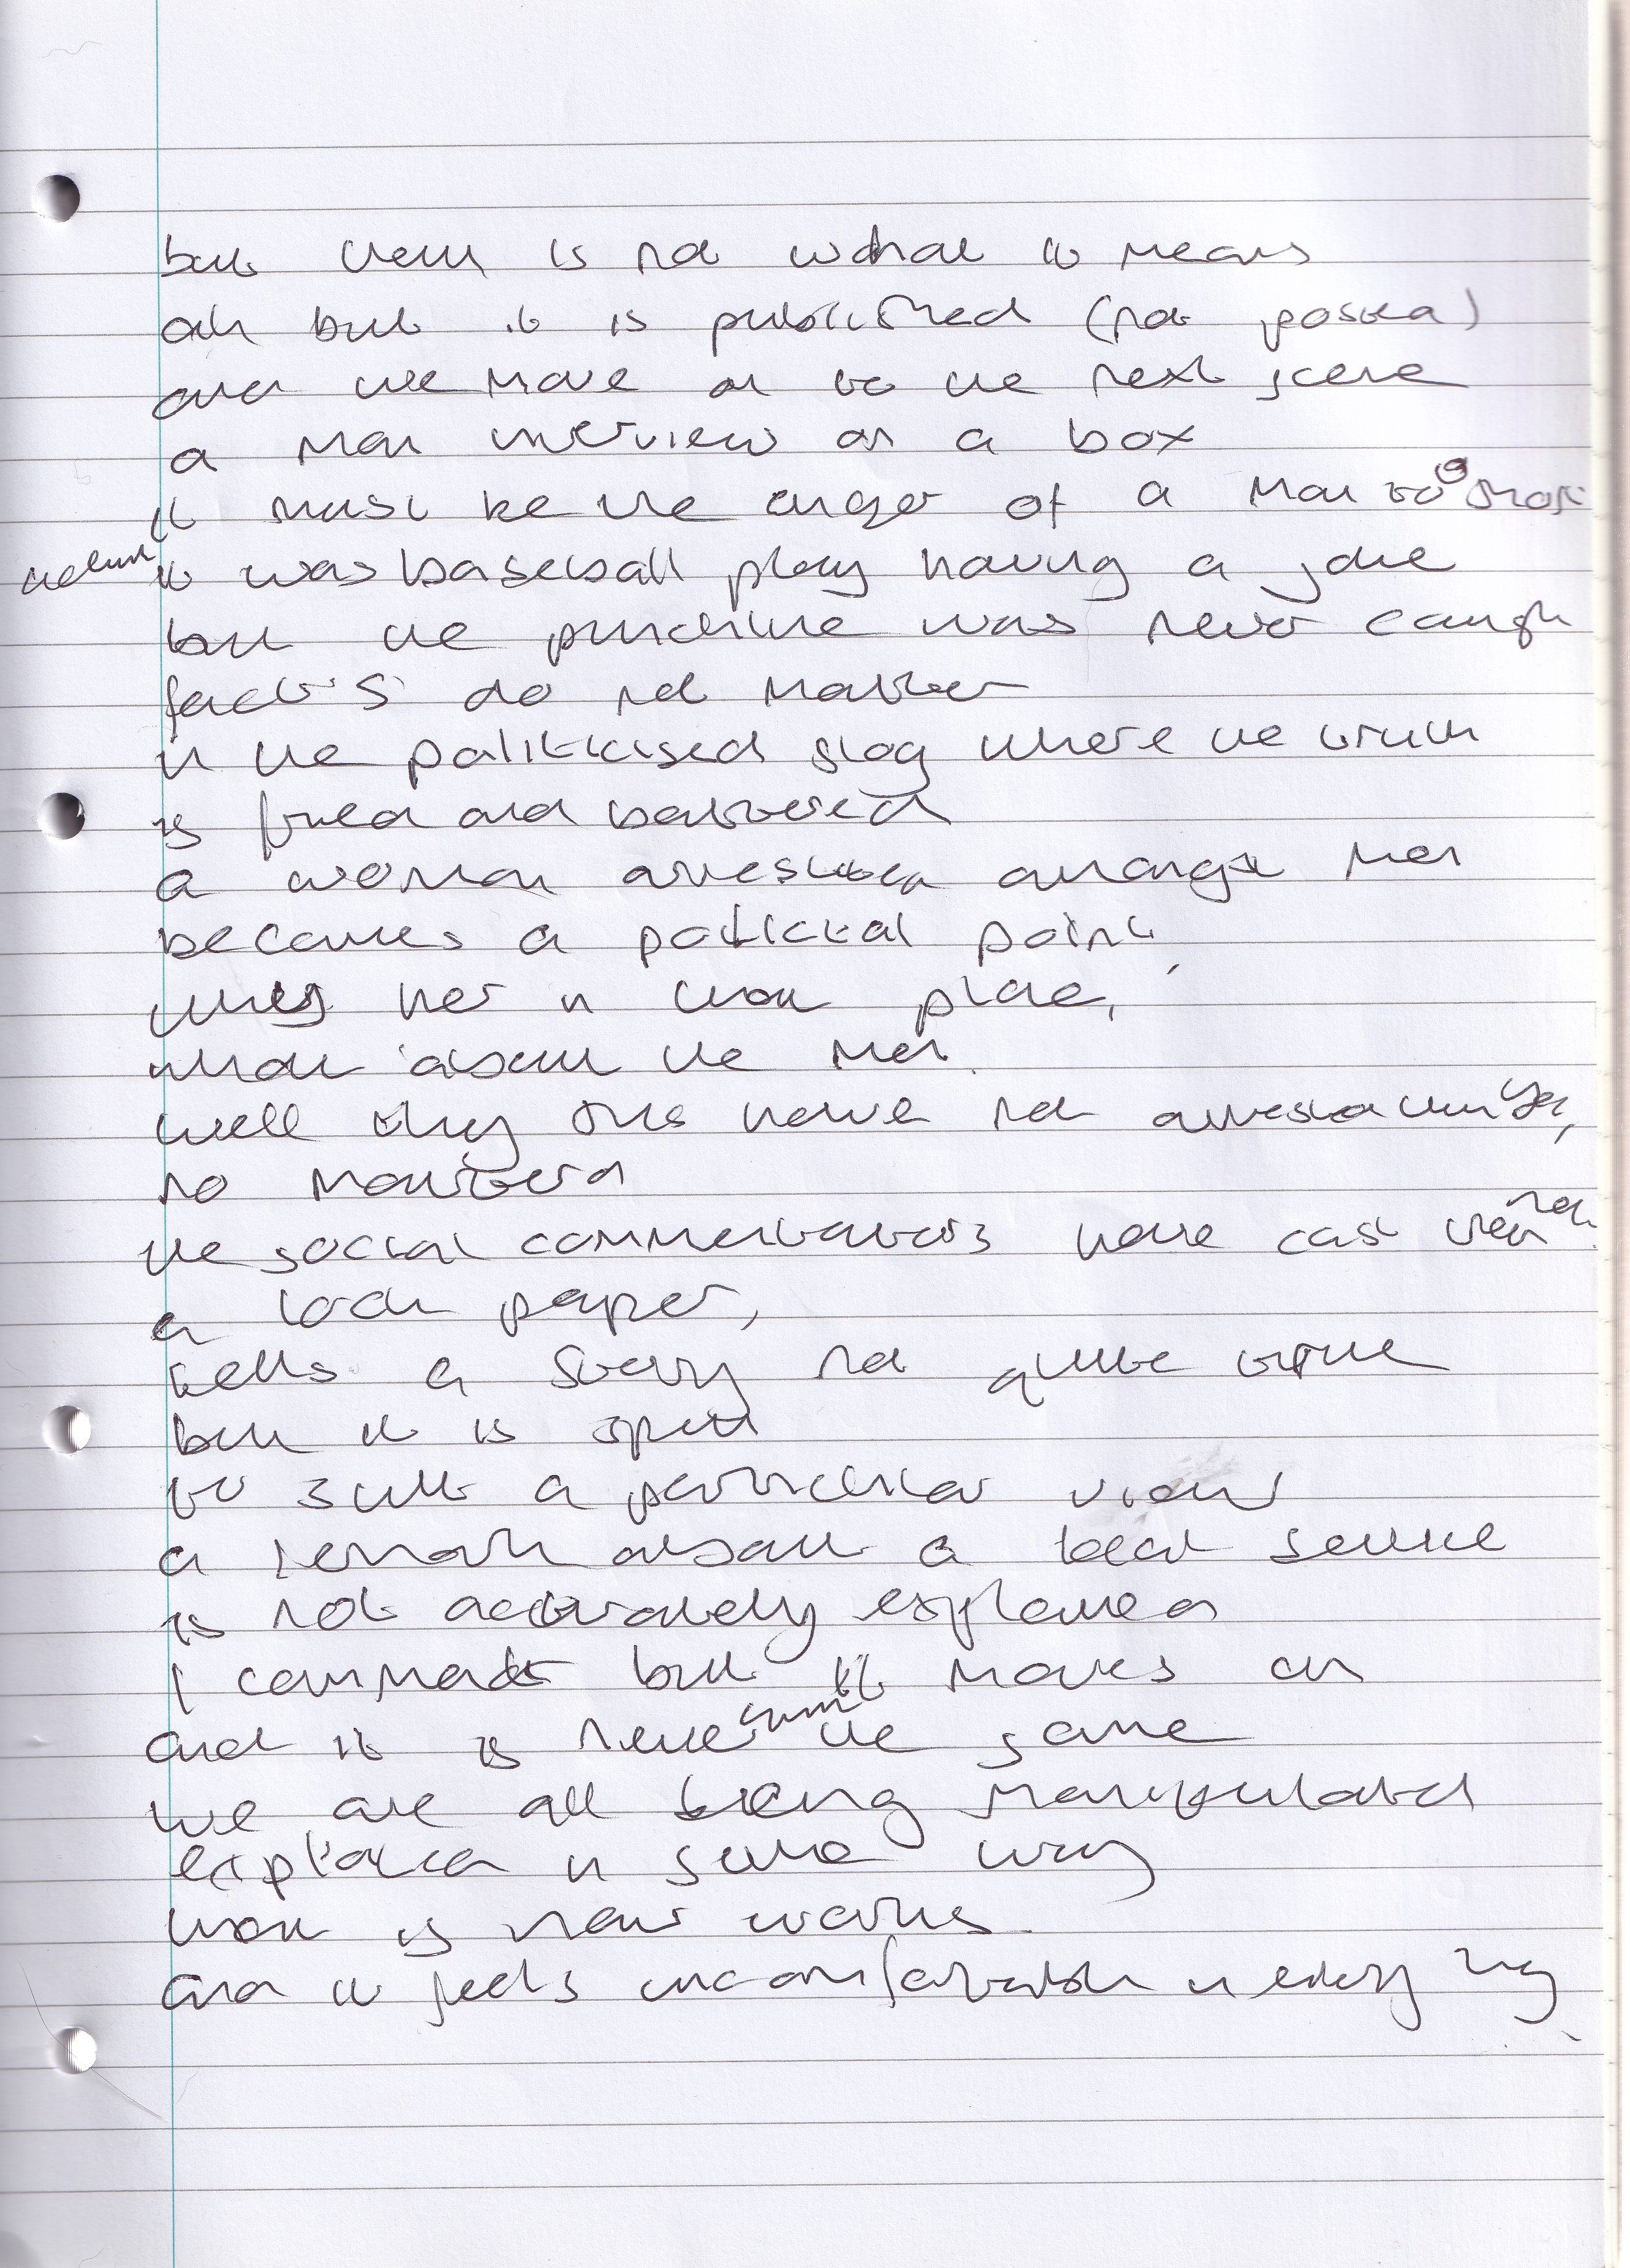 but that is not what it means
ah but it is published (not posted)
and we move on to the next scene
a man interview on a box
it must be the anger of a man to
it was baseball play having a joke
but the punchline was never caught
facts do not matter
in the politicised slog where the truth
is fried and battered
a woman arrested amongst men
becomes a political point,
her in that place,
what about the men.
well they have not arrested
no matter
the social commentators have cast their net.
a local paper,
tells a story not quite true
but it is spun
to suit a particular view
a remark about a local service
is not accurately explained
I comment but it moves on
and it is never quite the same
we are all being manipulated
exploited in some way
that is how works
and it feels uncomfortable in every way